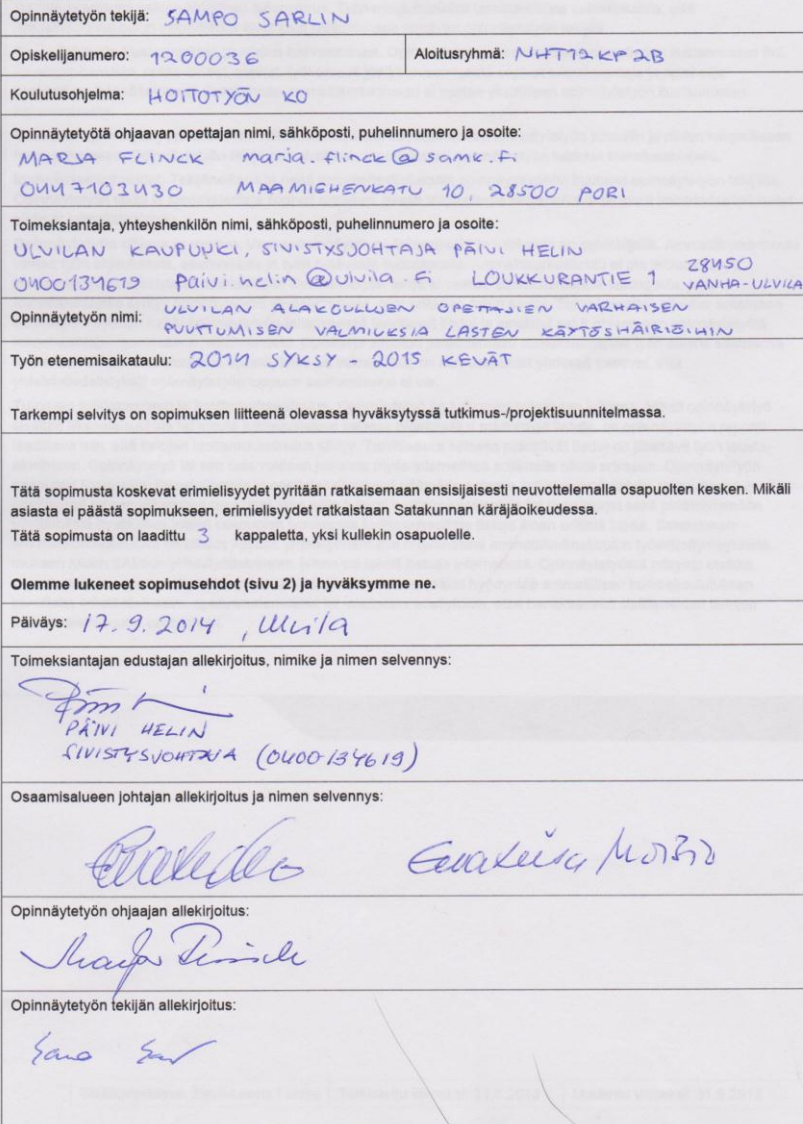 Opinnäytetyön tekijä: SAMPO SARLIN
Opiskelijanumero: 1200036 Aloitusryhmä: NHT12KP2B
Koulutusohjelma: HOITOTYÖN KO
Opinnäytetyötä ohjaavan opettajan nimi, sähköposti, puhelinnumero ja osoite:
MARJA FLINCK marja.flinck@samk.fi
0447103430 MAAMIEHENKATU 10, 28500 PORI
Toimeksiantaja, yhteyshenkilön nimi, sähköposti, puhelinnumero ja osoite:
ULVILAN KAUPUNKI, SIVISTYSJOHTAJA PÄIVI HELIN
0400134619 paivi.helin@ulvila.fi LOUKKURANTIE 1 28450 VANHA-ULVILA
Opinnäytetyön nimi: ULVILAN ALAKOULUJEN OPETTAJIEN VARHAISEN
PUUTTUMISEN VALMIUKSIA LASTEN KÄYTÖSHÄIRIÖIHIN
Työn etenemisaikataulu: 2014 SYKSY - 2015 KEVÄT
Tarkempi selvitys on sopimuksen liitteenä olevassa hyväksytyssä tutkimus-/projektisuunnitelmassa.
Tätä sopimusta koskevat erimielisyydet pyritään ratkaisemaan ensisijaisesti neuvottelemalla osapuolten kesken. Mikäli
asiasta ei päästä sopimukseen, erimielisyydet ratkaistaan Satakunnan käräjäoikeudessa.
Tätä sopimusta on laadittu 3 kappaletta, yksi kullekin osapuolelle.
Olemme lukeneet sopimusehdot (sivu 2) ja hyväksymme ne.
Päiväys: 17.9.2014, Ulvila
Toimeksiantajan edustajan allekirjoitus, nimike ja nimen selvennys:
PÄIVI HELIN
SIVISTYSJOHTAJA (0400134619)
Osaamisalueen johtajan allekirjoitus ja nimen selvennys:
Opinnäytetyön ohjaajan allekirjoitus:
Opinnäytetyön tekijän allekirjoitus: